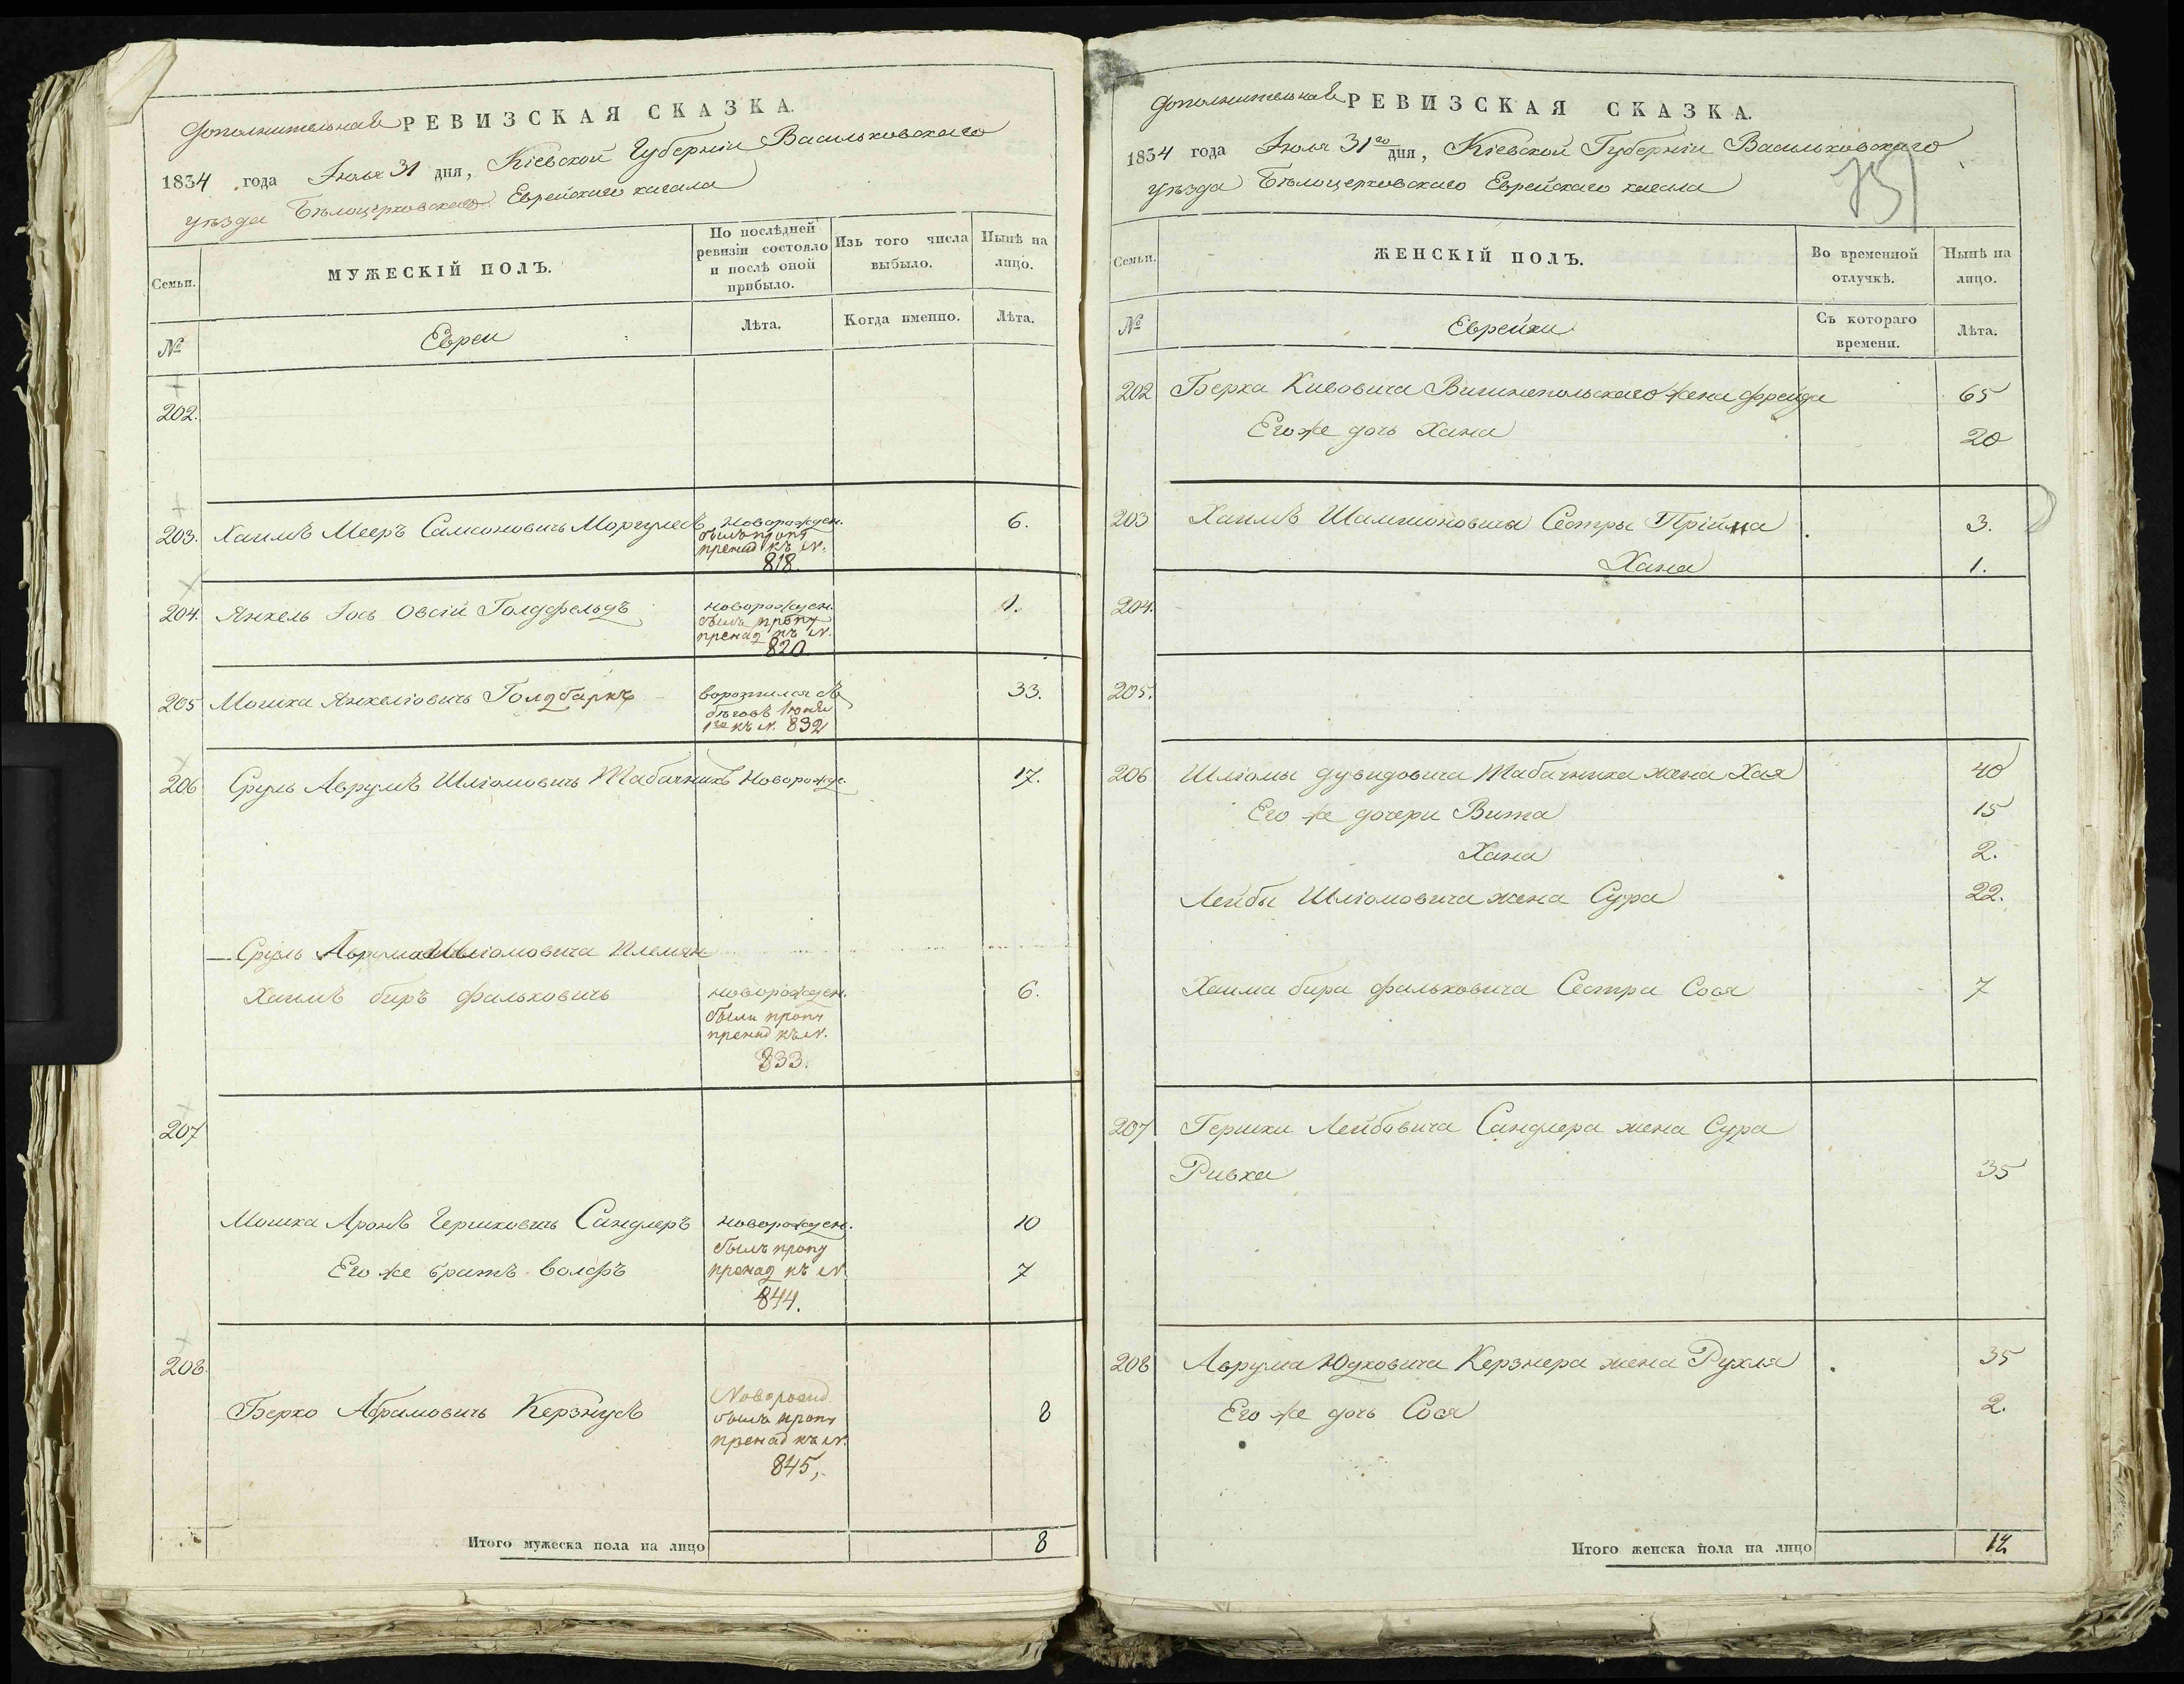 Дополнительная РЕВИЗСКАЯ СКАЗКА.
1834 года Июля 31 дня, Кіевской Губерніи Васильковскаго
уѣзда Бѣлоцерковскаго Еврейскаго кагала
Семьи.
МУЖЕСКІЙ ПОЛЪ.
По послѣдней ревизіи состояло и послѣ оной прибыло.
Изъ того числа выбыло.
Нынѣ на лицо.
№
Евреи
Лѣта.
Когда именно.
Лѣта.
202.
203. Хаимъ Мееръ Самсоновичь Моргулесъ Новорожден. 6.
былъ проп
пренад къ N.
818.
204. Янкель Іось Овсій Голдфельдъ новорожден. 1.
былъ проп
пренад къ N.
820.
205 Мошка Янкеліовичь Голдбаркъ воротился съ 33.
бѣговъ Іюня
1го къ N. 832
206 Сруль Аврумъ Шліомовичь Табачникъ Новорожде. 17.
Сруль Аврума Шліомовича племян
Хаимъ биръ фальковичь новорожден. 6.
были проп
пренад къ N.
833.
207
Мошка Аронъ Гершковичь Сандлеръ новорожден. 10
былъ проп
Его же братъ волфъ пренад къ N 7
844.
208.
Берко Абрамовичь Керзнусъ 8
былъ проп
пренад къ N.
845,
Итого мужеска пола на лицо 8
Дополнительная РЕВИЗСКАЯ СКАЗКА.
1834 года Июля 31го дня, Кіевской Губерніи Васильковскаго
уѣзда Бѣлоцерковскаго Еврейскаго кагала
Семьи.
ЖЕНСКІЙ ПОЛЪ.
Во временной отлучкѣ.
Нынѣ на лицо.
№
Еврейки
Съ котораго времени.
Лѣта.
202 Берка Кивовича жена фрейда 65
Его же дочь Хана 20
203 Хаимъ Шамшоновича Сестры 3.
Хана 1.
204.
205.
206 Шліомы дувидовича Табачника жена Хая 40
Его же дочери Вита 15
Хана 2.
Лейбы Шліомовича жена Сура 22.
Хаима бира фальковича Сестра Сося 7
207 Гершки Лейбовича Сандлера жена Сура
Ривка 35
208 Аврума Юдковича Керзнера жена Рухля 35
Его же дочь Сося 2.
Итого женска пола на лицо 12